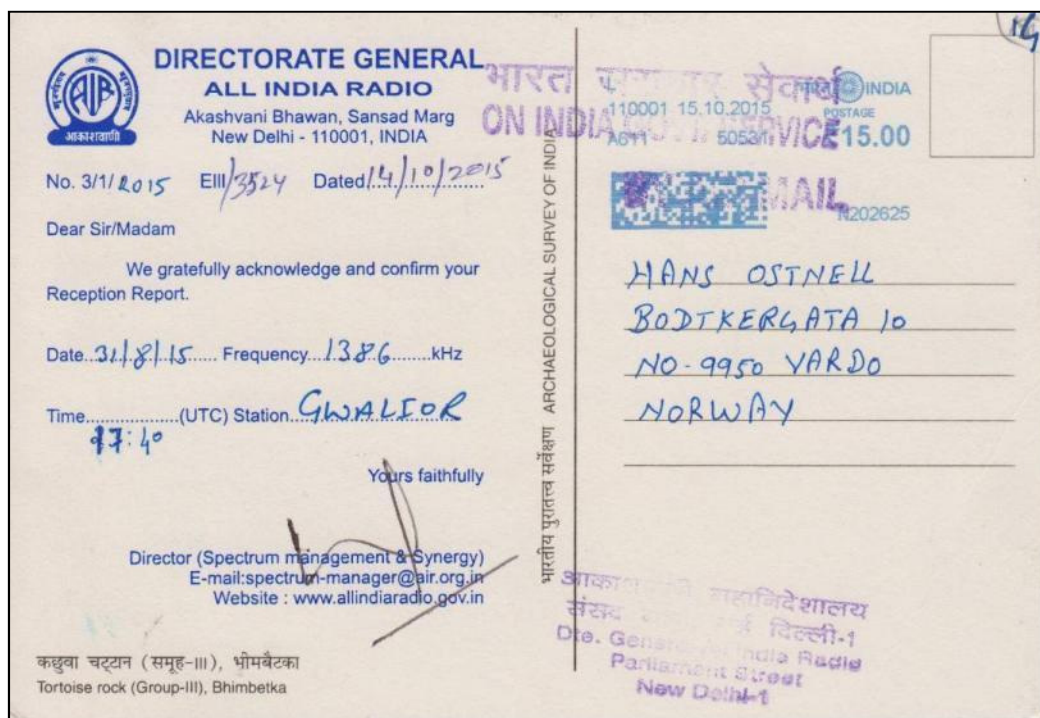 DIRECTORATE GENERAL
ALL INDIA RADIO
Akashvani Bhawan, Sansad Marg
New Delhi - 110001, INDIA
AIR
आकाशवाणी
No. 3/1/2015 EIII/3524 Dated 14/10/2015
Dear Sir/Madam
We gratefully acknowledge and confirm your
Reception Report.
Date..31/8/15..... Frequency...1386......kHz
Time...............(UTC) Station..GWALIOR
17:40
Yours faithfully
Director (Spectrum management & Synergy)
E-mail:spectrum-manager@air.org.in
Website : www.allindiaradio.gov.in
कछुवा चट्टान (समूह-III), भीमबैटका
Tortoise rock (Group-III), Bhimbetka
भारतीय पुरातत्त्व सर्वेक्षण ARCHAEOLOGICAL SURVEY OF INDIA
भारत सेवार्थ
ON INDIA SERVICE
MAIL
INDIA
110001 15.10.2015
POSTAGE
₹15.00
A611 50531
N202625
HANS OSTNELL
BODTKERGATA 10
NO-9950 VARDO
NORWAY
महानिदेशालय
संसद दिल्ली-1
Dte. General India Radio
Parliament Street
New Delhi-1